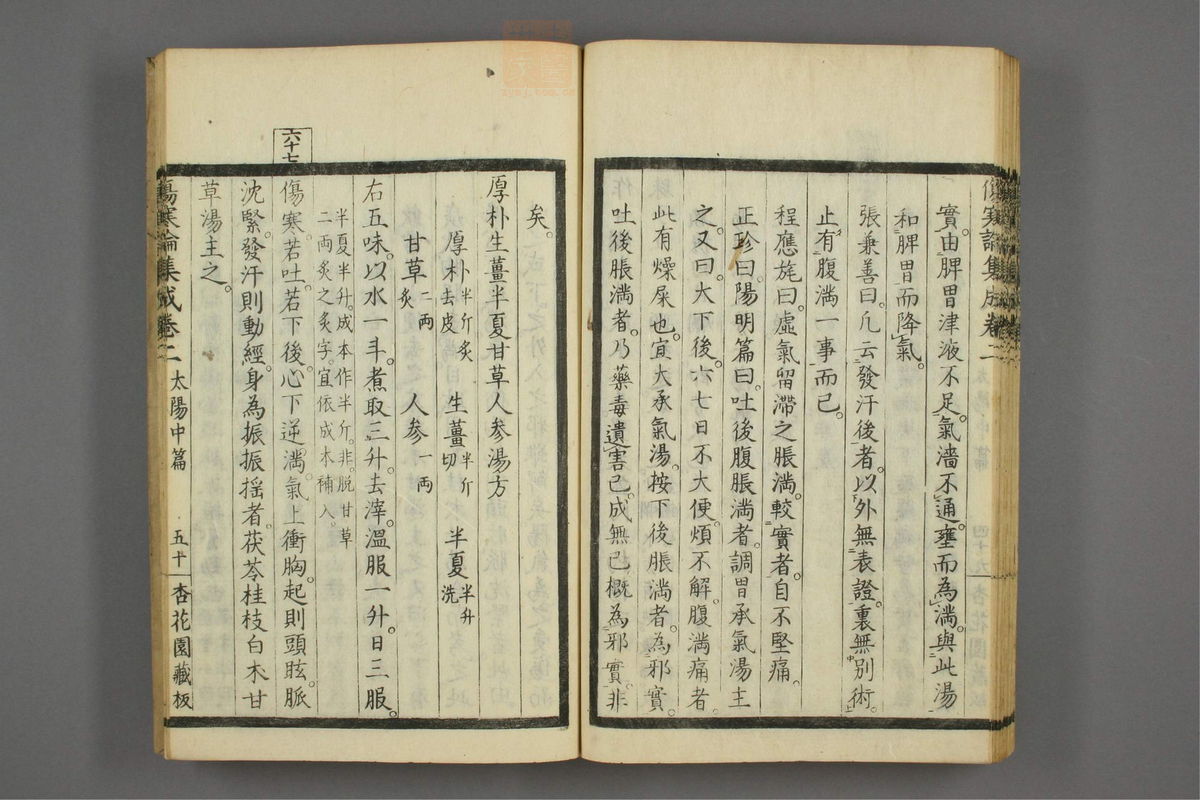 傷寒論集成卷二
實。由脾胃津液不足。氣濇不通。壅而為滿。與此湯
和脾胃而降氣。
張兼善曰。凡云發汗後者。以外無表證。裏無別術。
止有腹滿一事而已。
程應旄曰。虛氣留滯之脹滿。較實者。自不堅痛。
正珍曰。陽明篇曰。吐後腹脹滿者。調胃承氣湯主
之。又曰。大下後。六七日不大便。煩不解。腹滿痛者。
此有燥屎也。宜大承氣湯。按下後脹滿者。為邪實。
吐後脹滿者。乃藥毒遺害已。成無已概為邪實。非
矣。
厚朴生薑半夏甘草人參湯方
厚朴半斤炙去皮 生薑半斤切 半夏半升洗
甘草二兩炙 人參一兩
右五味。以水一斗。煮取三升。去滓。溫服一升。日三服。
半夏半升。成本作半斤。非。脫甘草
二兩炙之炙字。宜依成本補入。
六十七
傷寒。若吐。若下後。心下逆滿。氣上衝胸。起則頭眩。脈
沈緊。發汗則動經。身為振振搖者。茯苓桂枝白朮甘
草湯主之。
傷寒論集成卷二 太陽中篇 五十 杏花園藏板